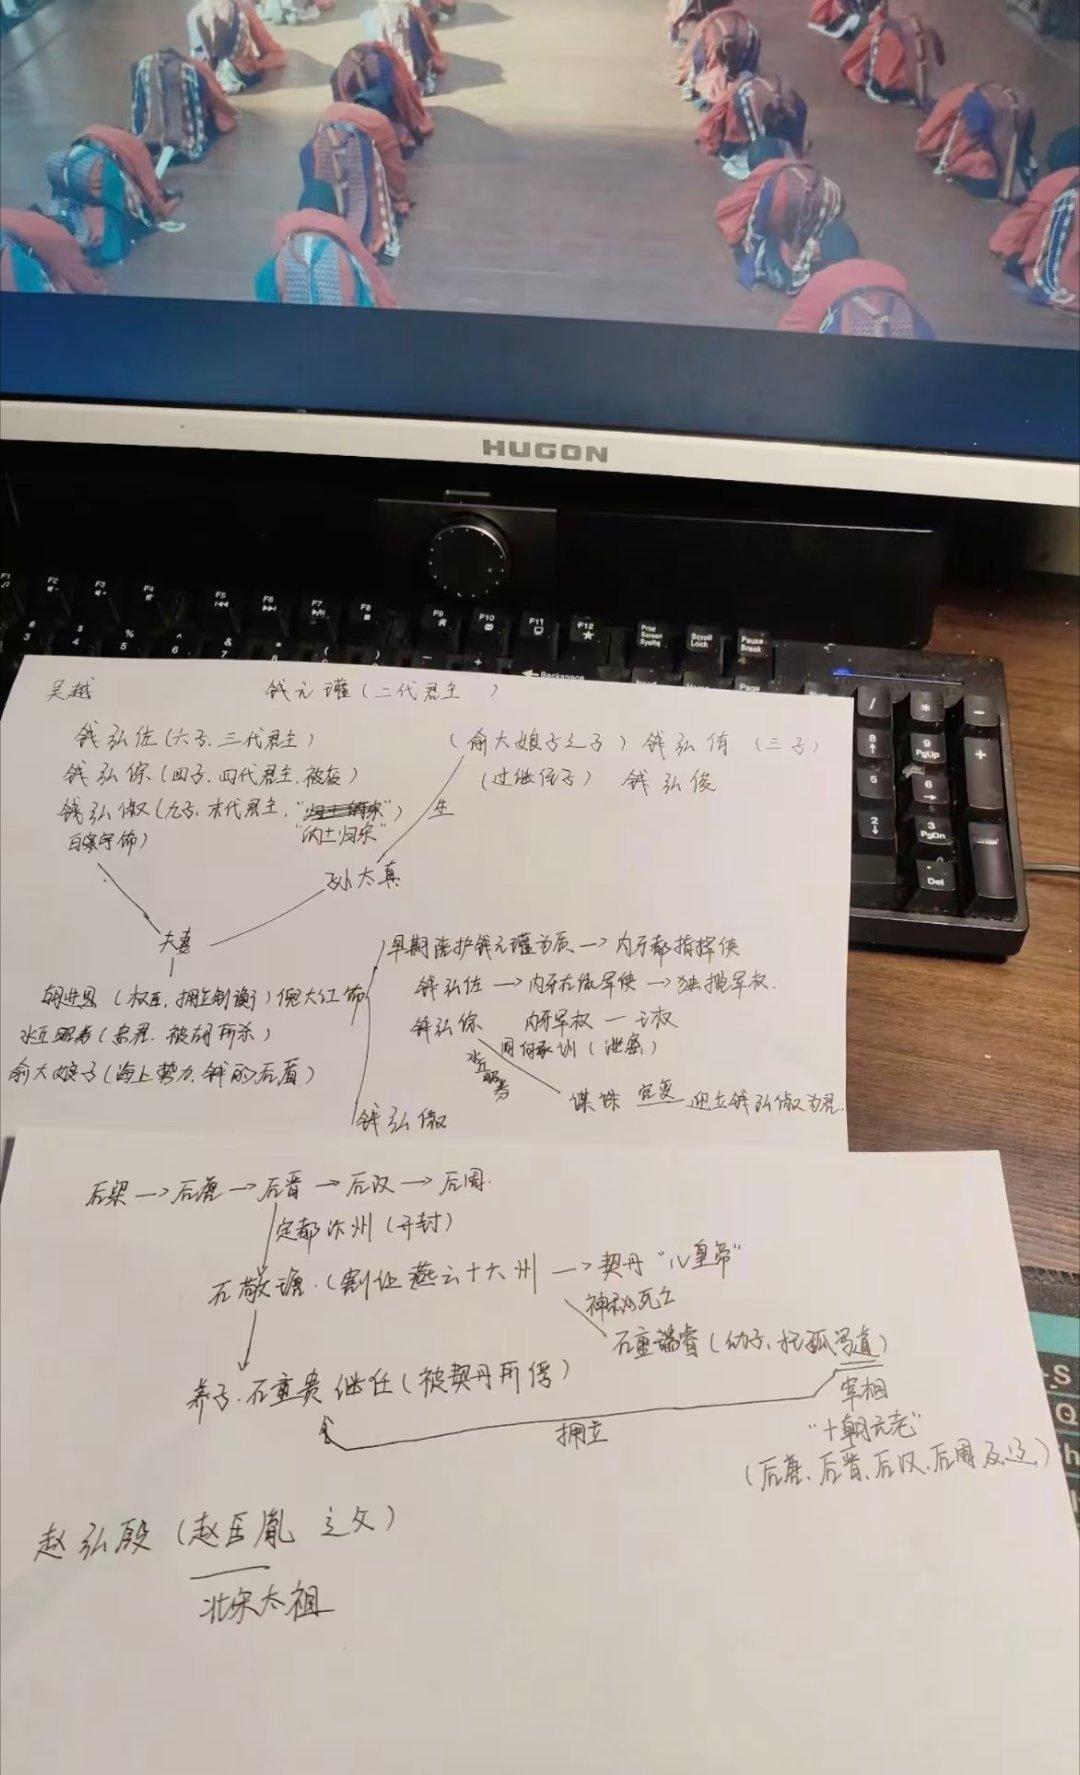 HUGON
F1
F2
F3
F4
F5
F6
F7
F8
F9
F10
F11
F12
Print Screen SysRq
Scroll Lock
Pause Break
# 3
$ 4
% 5
^ 6
& 7
Backspace
/
*
-
8
9 PgUp
+
5
6
2
3 PgDn
Del
吴越 钱元瓘(二代君主)
钱弘佐(六子、三代君主) (俞大娘子之子)钱弘侑(三子)
钱弘倧(四子、四代君主、被废) (过继侄子) 钱弘俊
钱弘俶(九子、末代君主、 ) 生
白宇饰) "纳土归宋"
孙太真
夫妻
早期陪护钱元瓘为质→内牙都指挥使
胡进思(权臣、拥立制衡)倪大红饰
钱弘佐→内牙左统军使→独揽军权.
水丘昭券(忠君、被胡所杀)
钱弘倧 内牙军权—王权
同何承训(泄密)
俞大娘子(海上势力、钱的后盾)
水丘昭券
谋诛 宫变 迎立钱弘俶为君.
钱弘俶
后梁→后唐→后晋→后汉→后周.
定都汴州(开封)
石敬瑭.(割让燕云十六州→契丹"儿皇帝"
神秘死亡
石重睿(幼子、托孤冯道)
养子.石重贵继任(被契丹所俘)
宰相
拥立
"十朝元老"
(后唐、后晋、后汉、后周及辽)
赵弘殷(赵匡胤之父)
北宋太祖